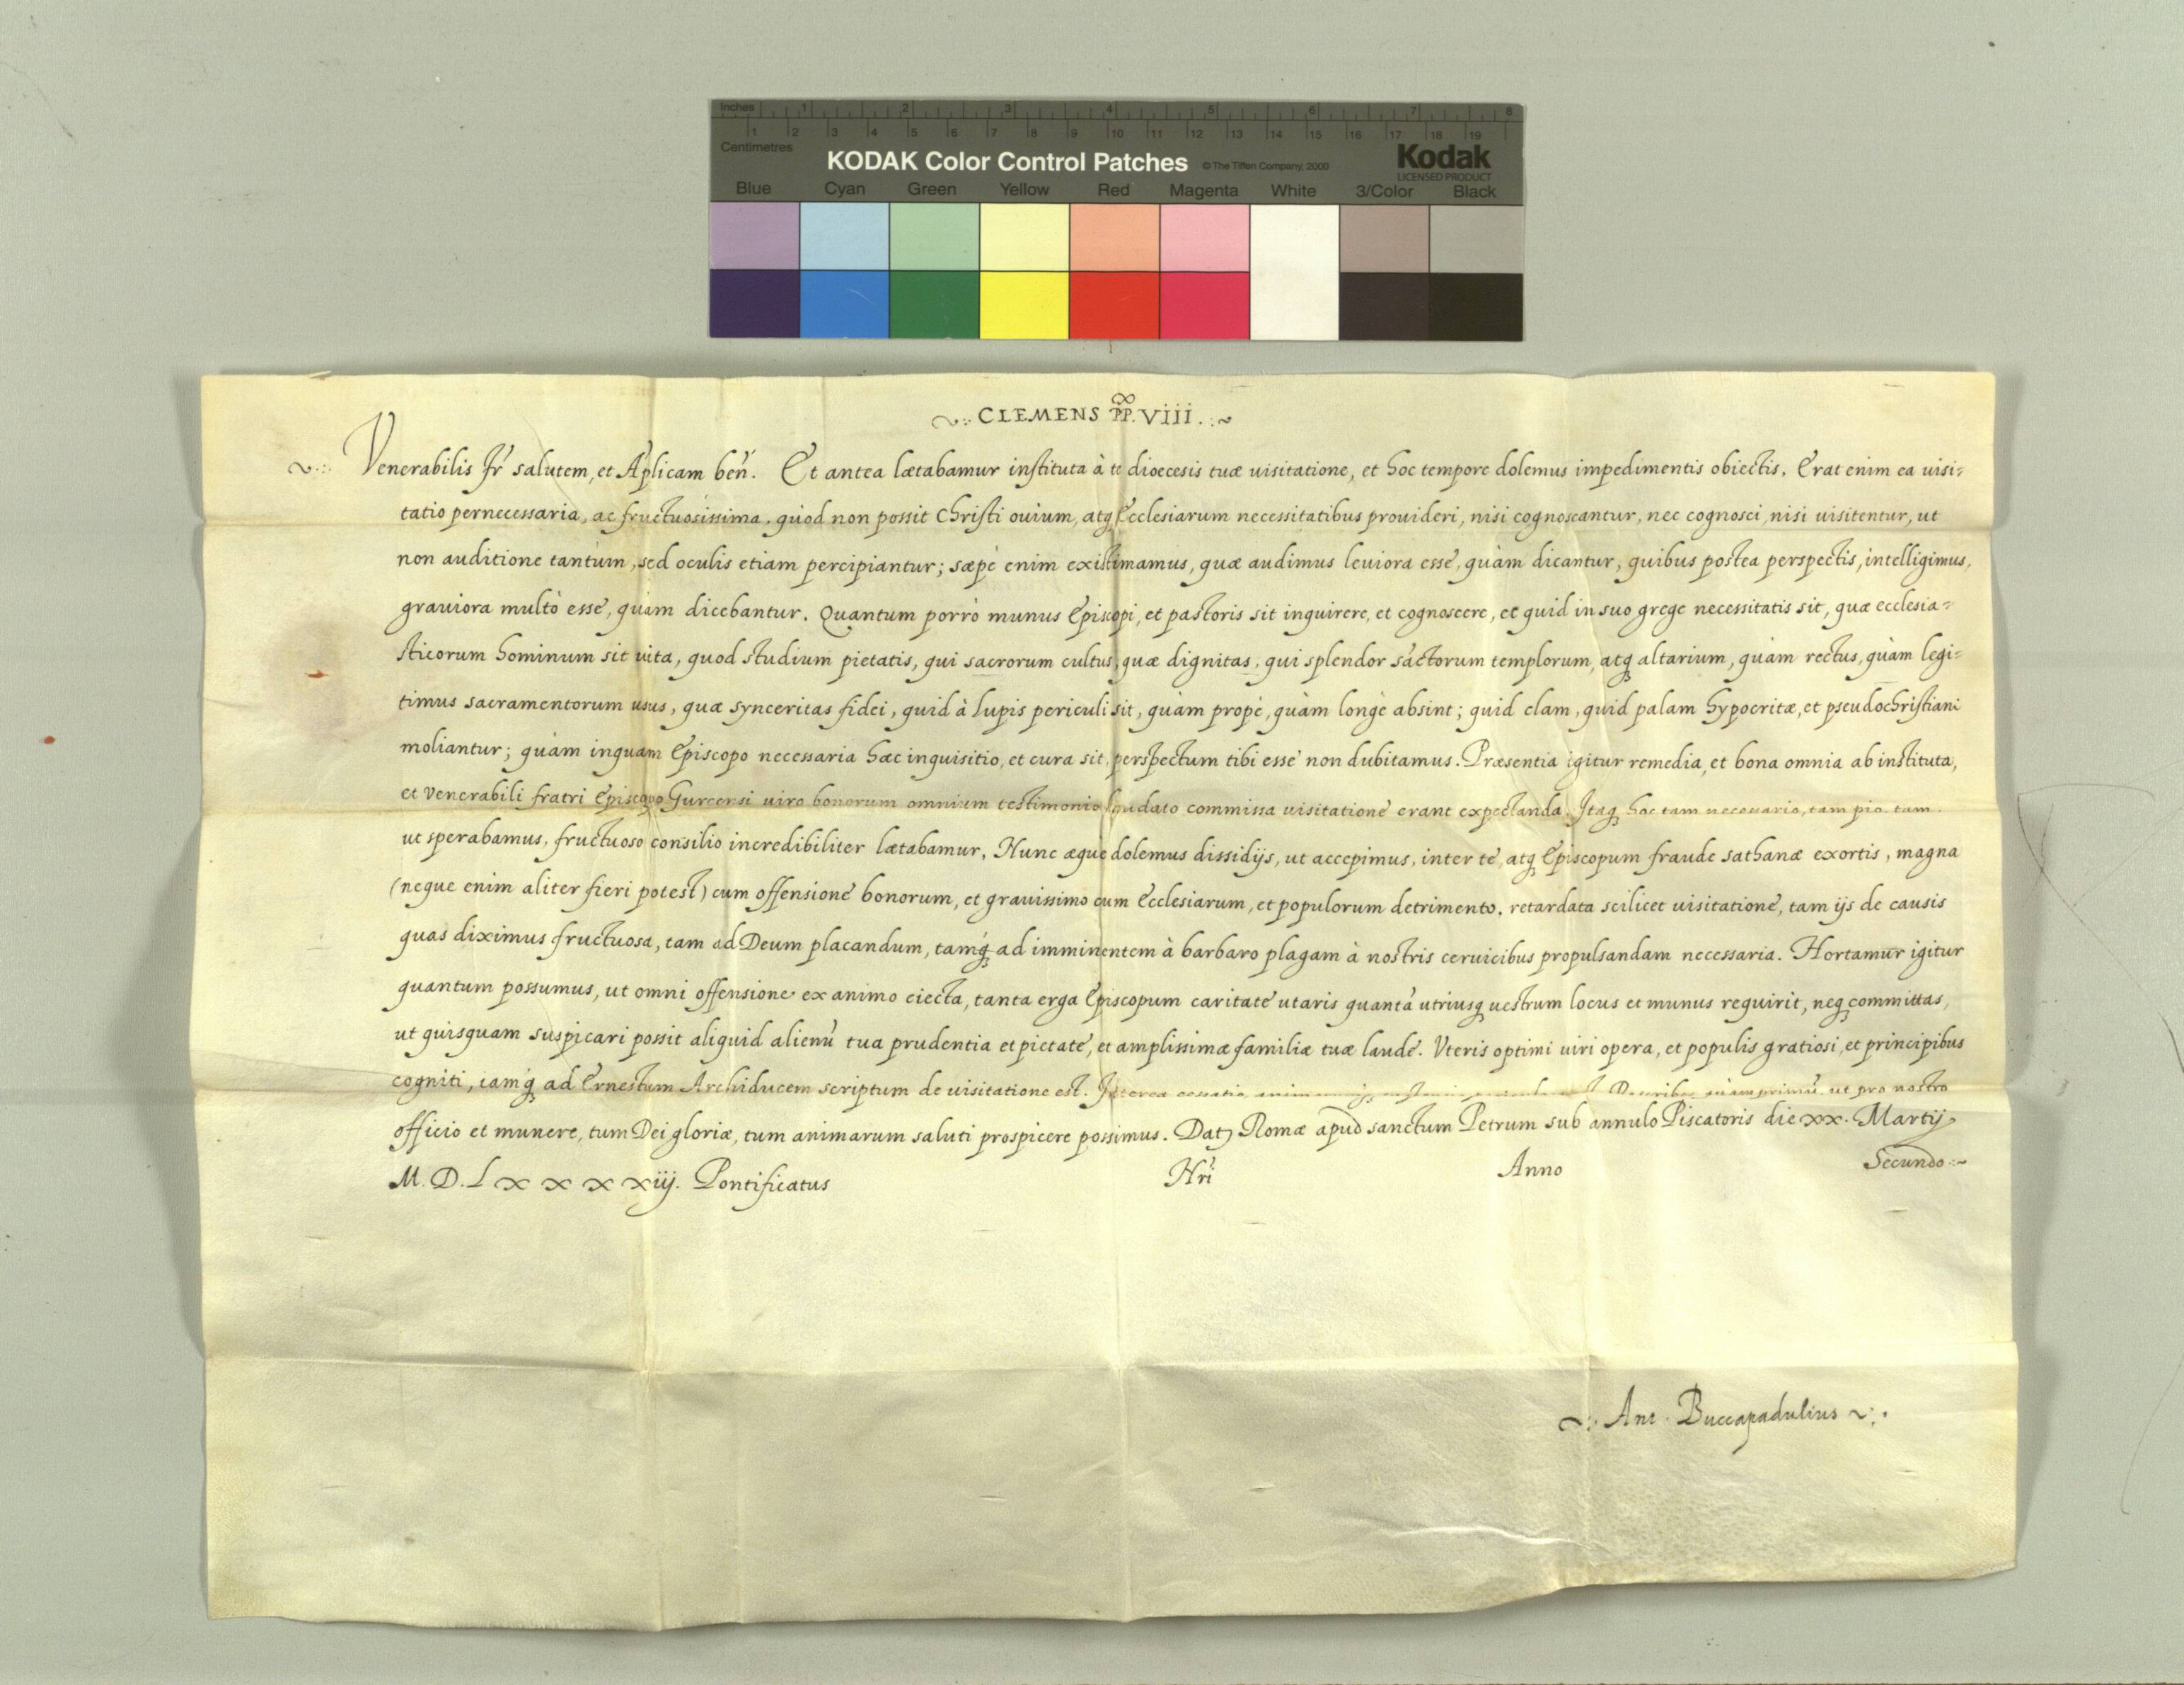 Inches 1 2 3 4 5 6 7 8
1 2 3 4 5 6 7 8 9 10 11 12 13 14 15 16 17 18 19
Centimetres
KODAK Color Control Patches © The Tiffen Company, 2000 Kodak
LICENSED PRODUCT
Blue Cyan Green Yellow Red Magenta White 3/Color Black
CLEMENS PP. VIII.
Venerabilis fr̃ salutem, et Ap̃licam beñ. Et antea lætabamur instituta à te diœcesis tuæ uisitatione, et hoc tempore dolemus impedimentis obiectis. Erat enim ea uisi-
tatio pernecessaria, ac fructuosissima, quòd non possit Christi ouium, atq; Ecclesiarum necessitatibus prouideri, nisi cognoscantur, nec cognosci, nisi uisitentur, ut
non auditione tantùm, sed oculis etiam percipiantur; sæpè enim existimamus, quæ audimus leuiora esse, quàm dicantur, quibus postea perspectis, intelligimus,
grauiora multò esse, quàm dicebantur. Quantum porrò munus Episcopi, et pastoris sit inquirere, et cognoscere, et quid in suo grege necessitatis sit, quæ ecclesia-
sticorum hominum sit uita, quod studium pietatis, qui sacrorum cultus, quæ dignitas, qui splendor sãctorum templorum, atq; altarium, quàm rectus, quàm legi-
timus sacramentorum usus, quæ synceritas fidei, quid à lupis periculi sit, quàm propè, quàm longè absint; quid clam, quid palam hypocritæ, et pseudochristiani
moliantur; quàm inquam Episcopo necessaria hæc inquisitio, et cura sit, perspectum tibi esse non dubitamus. Præsentia igitur remedia, et bona omnia ab instituta,
et Venerabili fratri Episcopo Gurcensi uiro bonorum omnium testimonio laudato commissa uisitatione erant expectanda. Itaq; hoc tam necessario, tam pio, tam
ut sperabamus, fructuoso consilio incredibiliter lætabamur. Nunc æque dolemus dissidijs, ut accepimus, inter te, atq; Episcopum fraude sathanæ exortis, magna
(neque enim aliter fieri potest) cum offensione bonorum, et grauissimo cum Ecclesiarum, et populorum detrimento, retardata scilicet uisitatione, tam ijs de causis
quas diximus fructuosa, tam ad Deum placandum, tamq́; ad imminentem à barbaro plagam à nostris ceruicibus propulsandam necessaria. Hortamur igitur
quantum possumus, ut omni offensione ex animo eiecta, tanta erga Episcopum caritate utaris quantã utriusq; uestrum locus et munus requirit, neq; committas,
ut quisquam suspicari possit aliquid alienũ tua prudentia et pietate, et amplissimæ familiæ tuæ laude. Vteris optimi uiri opera, et populis gratiosi, et principibus
cogniti, iamq́; ad Ernestum Archiducem scriptum de uisitatione est. Interea quàmprimũ, ut pro nostro
officio et munere, tum Dei gloriæ, tum animarum saluti prospicere possimus. Dat; Romæ apud sanctum Petrum sub annulo Piscatoris die xx. Martij
M. D. L x x x xiij. Pontificatus Nr̃i Anno Secundo
Ant. Buccapadulius